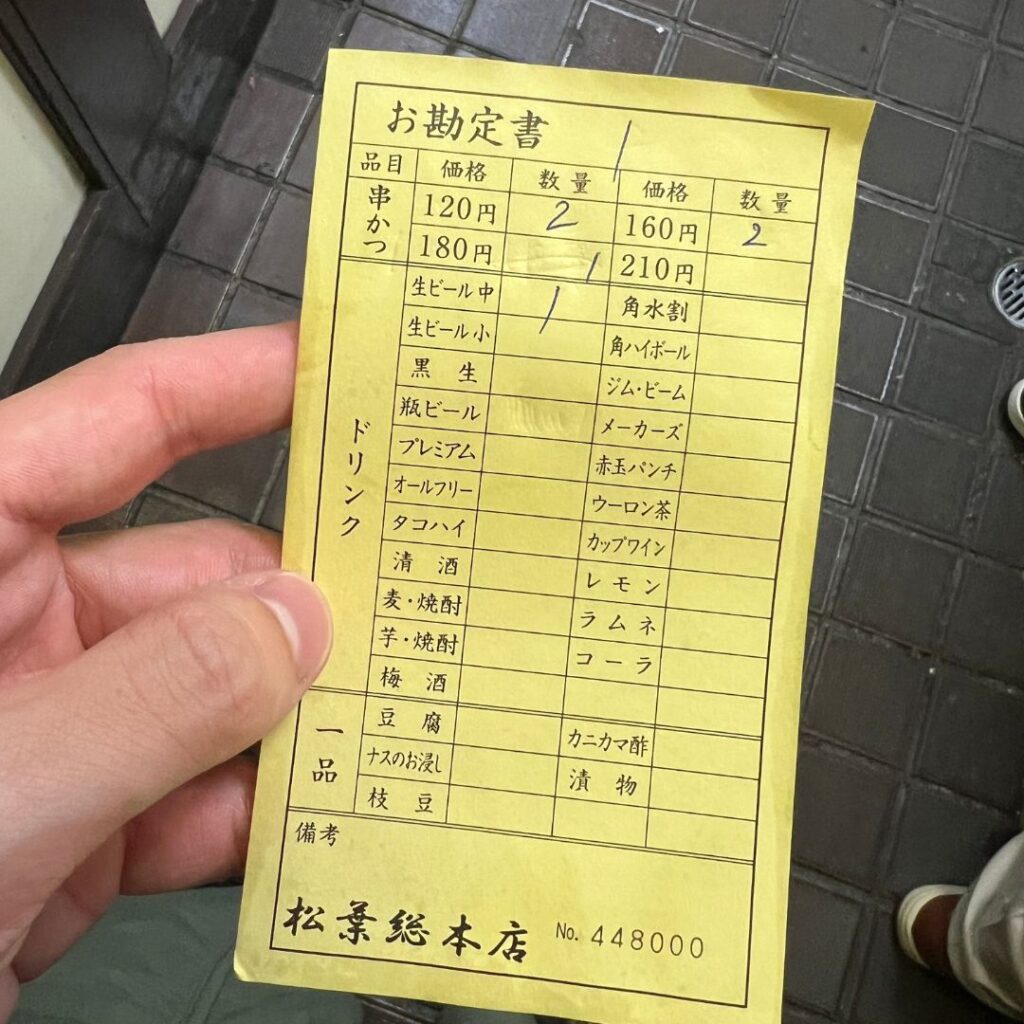 お勘定書 1
品目 価格 数量 価格 数量
串かつ 120円 2 160円 2
180円 1 210円
ドリンク 生ビール中 1 角水割
生ビール小 角ハイボール
黒生 ジム・ビーム
瓶ビール メーカーズ
プレミアム 赤玉パンチ
オールフリー ウーロン茶
タコハイ カップワイン
清酒 レモン
麦・焼酎 ラムネ
芋・焼酎 コーラ
梅酒
一品 豆腐 カニカマ酢
ナスのお浸し 漬物
枝豆
備考
松葉総本店 No. 448000